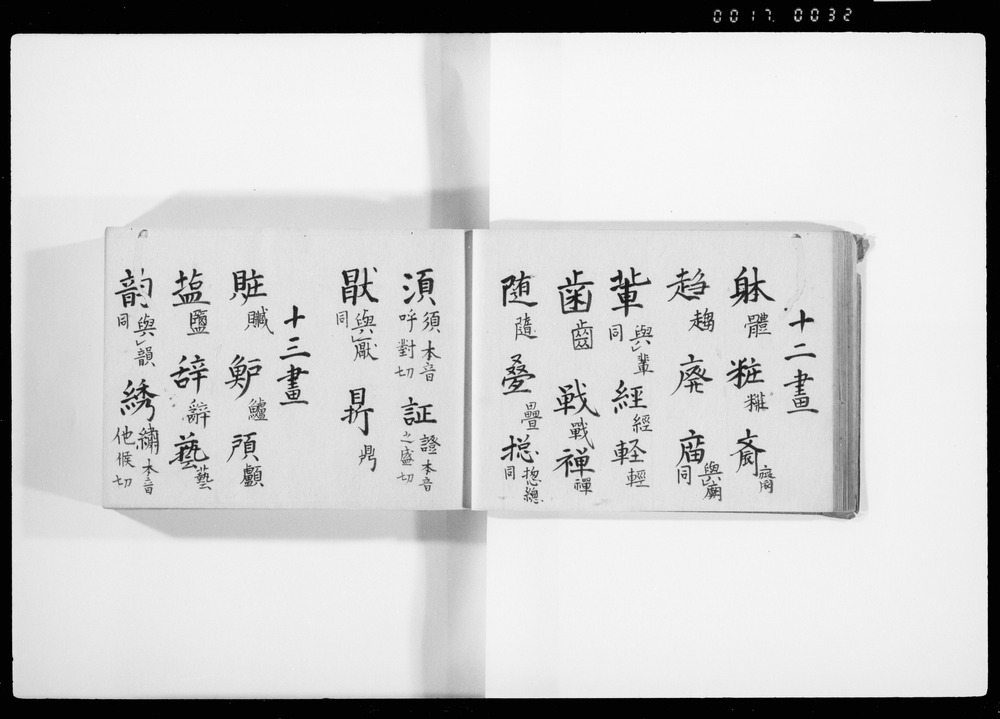 0017. 0032
十二畫
躰 體 粧 糚 斎 齋
趋 趨 廃 庿 與廟同
軰 與輩同 経 經 軽 輕
歯 齒 戦 戰 禅 禪
随 隨 叠 疊 捴 揔總同
湏 須 本音呼對切 証 證 本音之盛切
猒 與厭同 鼎
十三畫
賍 贓 鲈 鱸 顱
塩 鹽 辞 辭 藝 藝
韵 與韻同 綉 繡 本音他候切